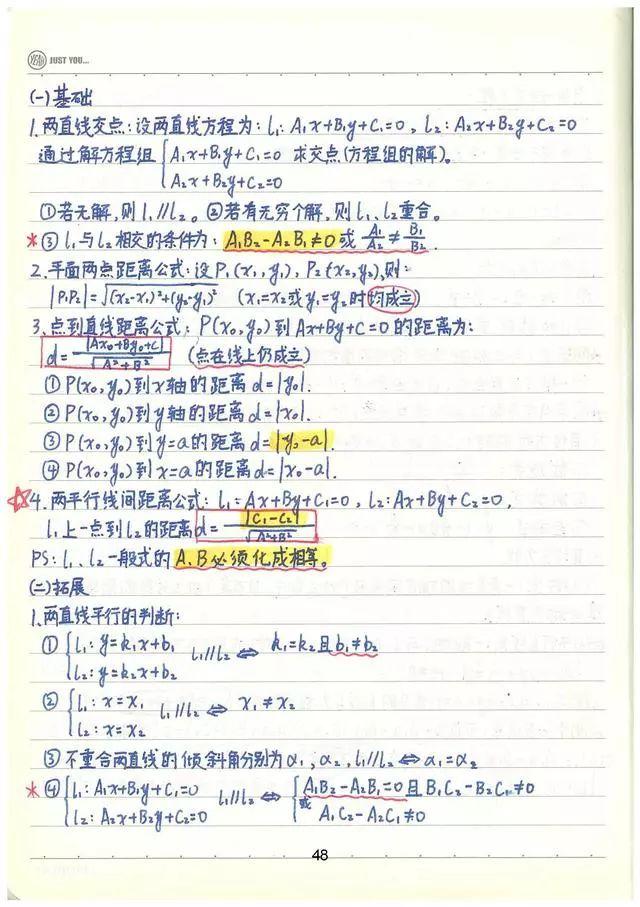 JUST YOU...
(一)基础
1.两直线交点:设两直线方程为:l₁:A₁x+B₁y+C₁=0,l₂:A₂x+B₂y+C₂=0
通过解方程组{A₁x+B₁y+C₁=0 求交点(方程组的解)。
A₂x+B₂y+C₂=0
①若无解,则l₁//l₂。②若有无穷个解,则l₁、l₂重合。
*③l₁与l₂相交的条件为:A₁B₂-A₂B₁≠0或A₁/A₂≠B₁/B₂.
2.平面两点距离公式:设P₁(x₁,y₁),P₂(x₂,y₂),则:
|P₁P₂|=√(x₂-x₁)²+(y₂-y₁)² (x₁=x₂或y₁=y₂时均成立)
3.点到直线距离公式:P(x₀,y₀)到Ax+By+C=0的距离为:
d=|Ax₀+By₀+C|/√A²+B² (点在线上仍成立)
①P(x₀,y₀)到x轴的距离d=|y₀|.
②P(x₀,y₀)到y轴的距离d=|x₀|.
③P(x₀,y₀)到y=a的距离d=|y₀-a|.
④P(x₀,y₀)到x=a的距离d=|x₀-a|.
☆4.两平行线间距离公式:l₁:Ax+By+C₁=0,l₂:Ax+By+C₂=0,
l₁上一点到l₂的距离d=|C₁-C₂|/√A²+B²
PS:l₁、l₂一般式的A、B必须化成相等。
(二)拓展
1.两直线平行的判断:
①{l₁:y=k₁x+b₁ l₁//l₂⇔k₁=k₂且b₁≠b₂
l₂:y=k₂x+b₂
②{l₁:x=x₁ l₁//l₂⇔x₁≠x₂
l₂:x=x₂
③不重合两直线的倾斜角分别为α₁,α₂,l₁//l₂⇔α₁=α₂
*④{l₁:A₁x+B₁y+C₁=0 l₁//l₂⇔{A₁B₂-A₂B₁=0且B₁C₂-B₂C₁≠0
l₂:A₂x+B₂y+C₂=0 或 A₁C₂-A₂C₁≠0
48